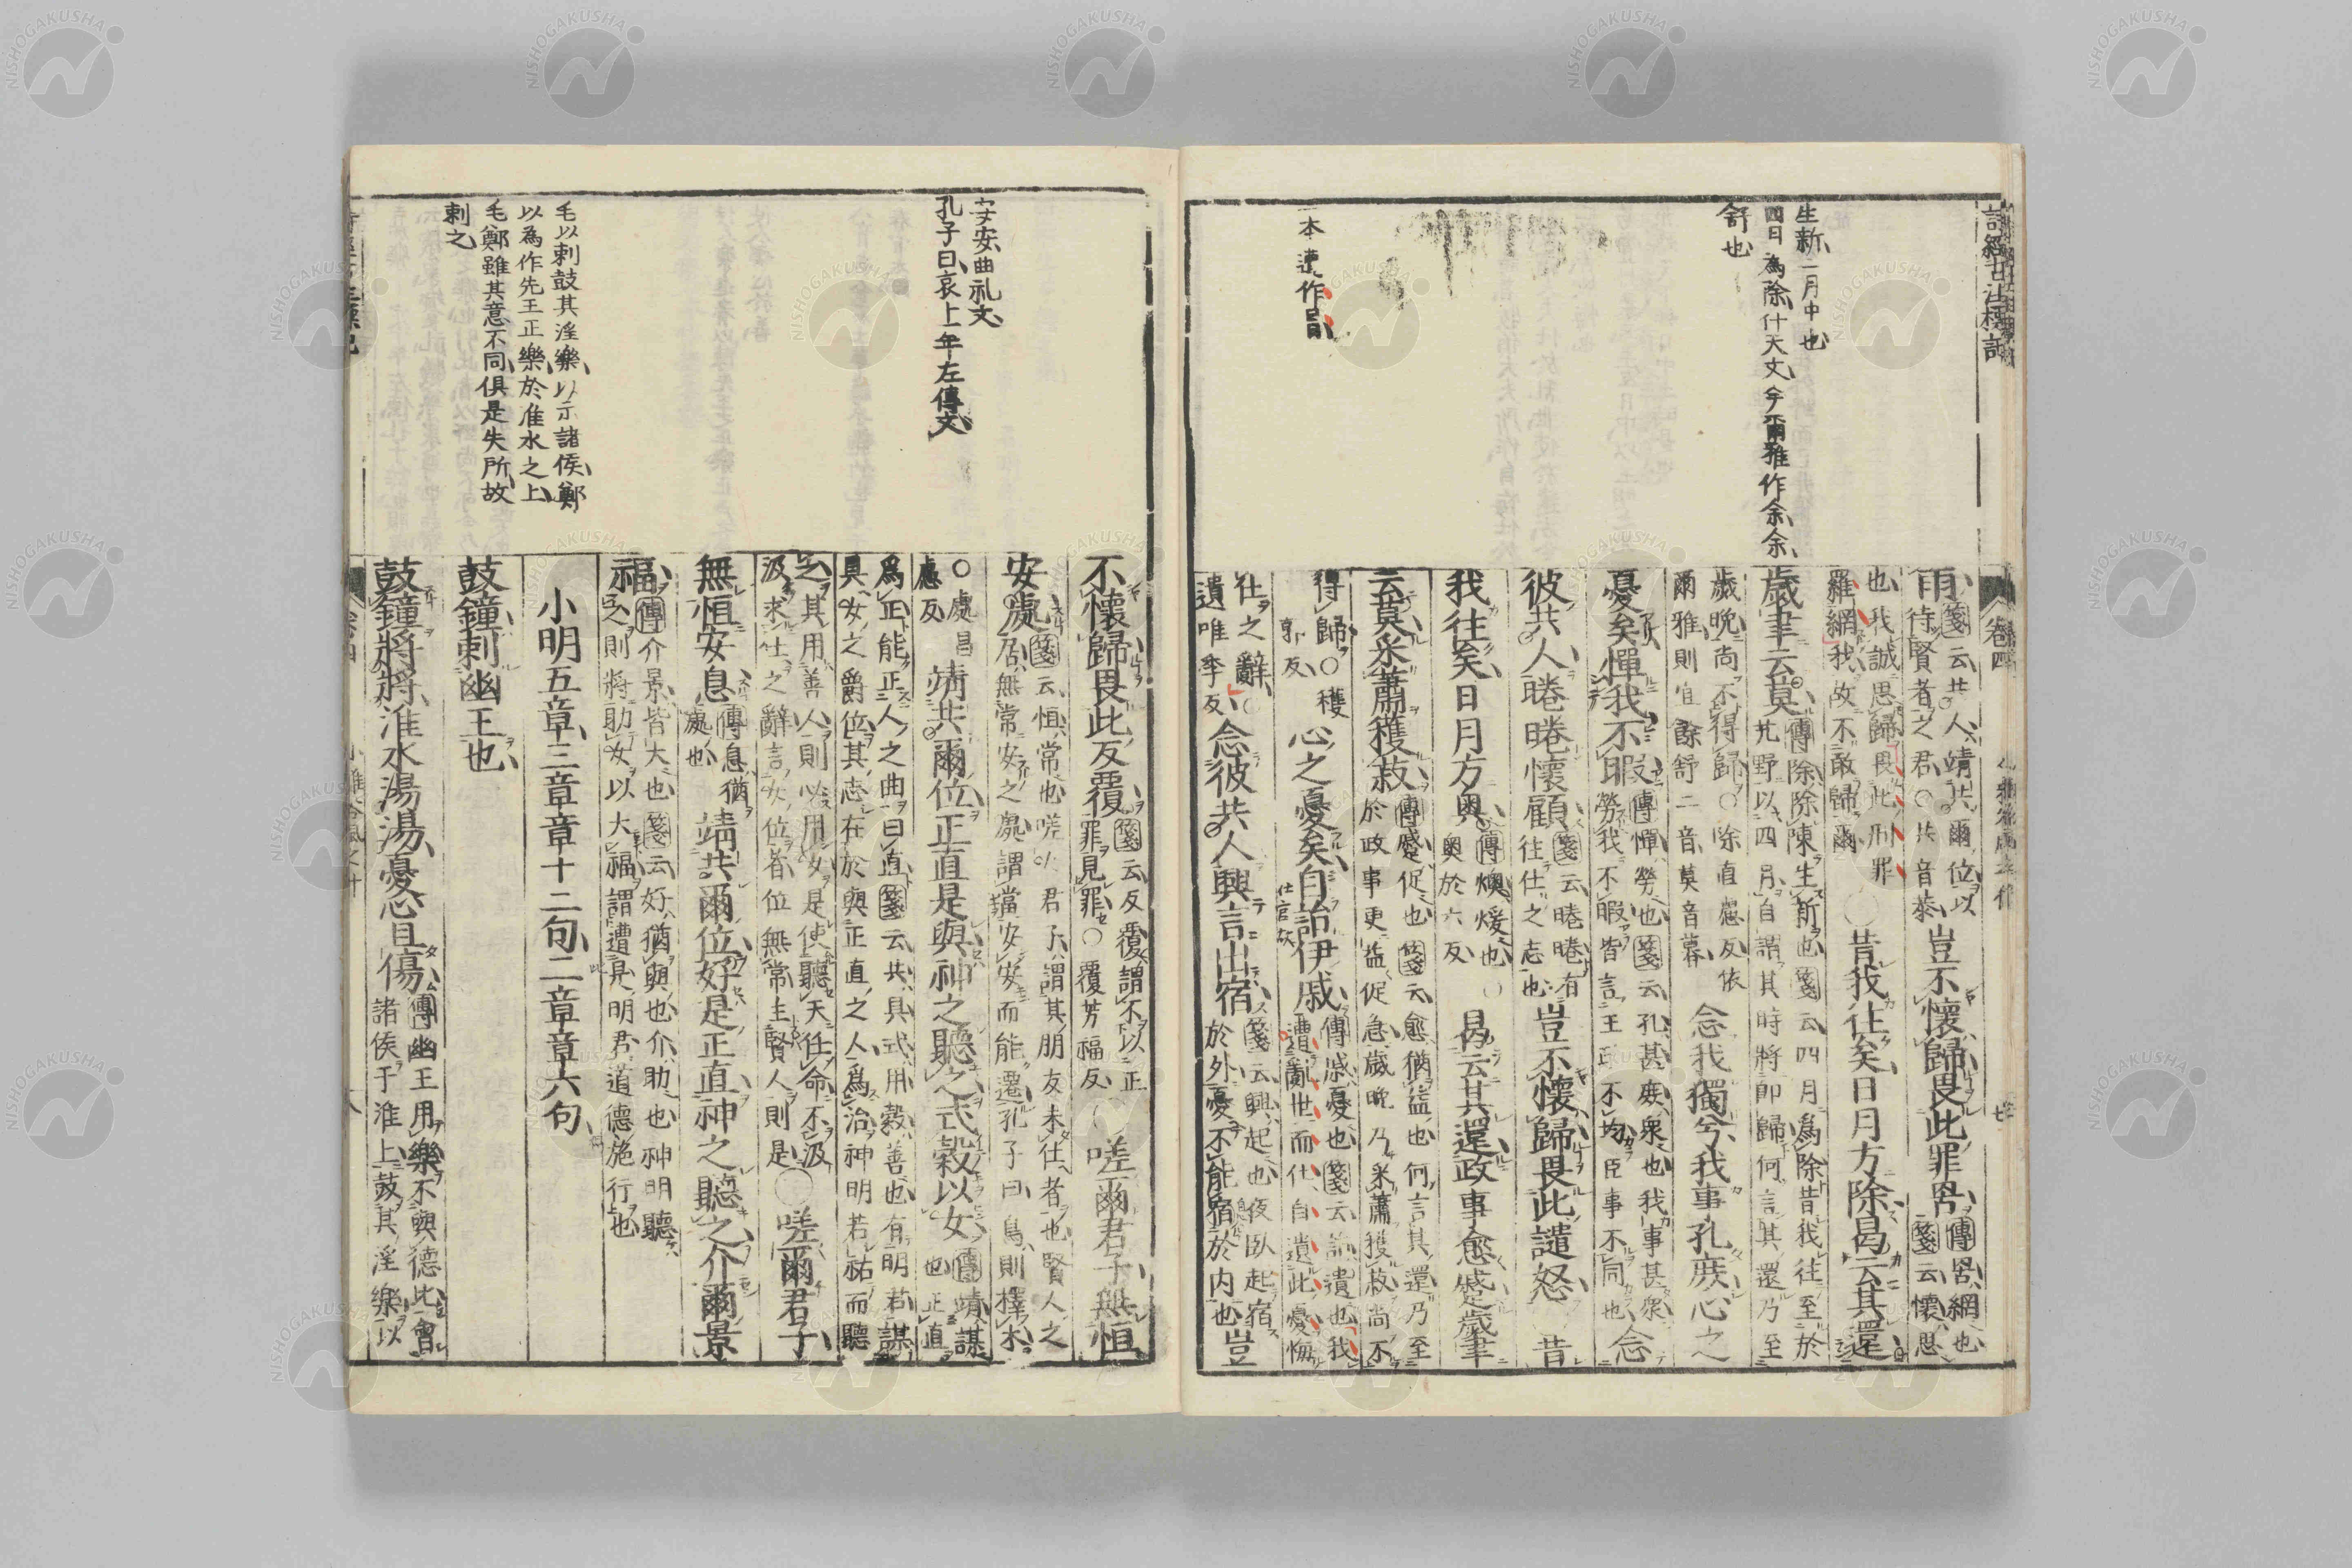 詩經古注標記
生新、二月中也
四日為除、什天文、今爾雅作余、余、
舒也
一本遺作貽
卷四
雨、箋云、共人、靖共爾位、以
待賢者之君、○共音恭、豈不懷歸、畏此罪罟、傳罟、網也
箋云、懷、思
也、我誠思歸、畏此刑罪
羅網、我故不敢歸爾 ○昔我往矣、日月方除、曷云其還、
歲聿云莫、傳除、除陳生新也、箋云、四月為除、昔我往至於
芃野、以四月、自謂其時將即歸、何言其還、乃至
歲晚、尚不得歸、○除直慮反、依
爾雅則宜餘舒二音、莫音暮、念我獨兮、我事孔庶、心之
憂矣、憚我不暇、傳憚、勞也、箋云、孔、甚、庶、衆也、我事甚衆、
勞我不暇、皆言王政不均、臣事不同也、念
彼共人、睠睠懷顧、箋云、睠睠、有
往仕之志也、豈不懷歸、畏此譴怒、昔
我往矣、日月方奧、傳燠、煖也、○
奧於六反 曷云其還、政事愈蹙、歲聿
云莫、采蕭穫菽、傳蹙、促也、箋云、愈猶益也、何言其還、乃至
於政事更益促急、歲晚乃采蕭穫菽、尚不
得歸、○穫
郭反 心之憂矣、自詒伊戚、傳戚、憂也、箋云、詒、遺也、我
遭亂世而仕、自遺此憂、悔
仕之辭、○
遺唯季反 念彼共人、興言出宿、箋云、興、起也、夜臥起宿
於外、憂不能宿於内也、豈
安安、曲礼文、
孔子曰、哀十一年左傳文、
毛以刺鼓其淫樂、以示諸侯、鄭
以為作先王正樂於淮水之上、
毛鄭雖其意不同、俱是失所、故
刺之
不懷歸、畏此反覆、箋云、反覆、謂不以正
罪見罪、○覆芳福反 ○嗟爾君子、無恒
安處、箋云、恒、常也、嗟女君子、謂其朋友未仕者也、賢人之
居、無常安之處、謂當安安而能遷、孔子曰、鳥則擇木、
○處昌
慮反 靖共爾位、正直是與、神之聽之、式穀以女、傳靖、謀
也、正直
為正、能正人之曲曰直、箋云、共、具、式、用、穀、善也、有明君謀
具女之爵位、其志在於與正直之人為治、神明若祐而聽
之、其用善人、則必用女、是使聽天任命、不汲
汲求仕之辭、言女位者、位無常主、賢人則是 ○嗟爾君子、
無恒安息、傳息、猶
處也 靖共爾位、好是正直、神之聽之、介爾景
福、傳介、景、皆大也、箋云、好猶與也、介、助也、神明聽
之、則將助女以大福、謂遭是明君、道德施行也、
小明五章、三章章十二句、二章章六句、
鼓鐘、刺幽王也、
鼓鐘將將、淮水湯湯、憂心且傷、傳幽王用樂、不與德比、會
諸侯于淮上、鼓其淫樂、以